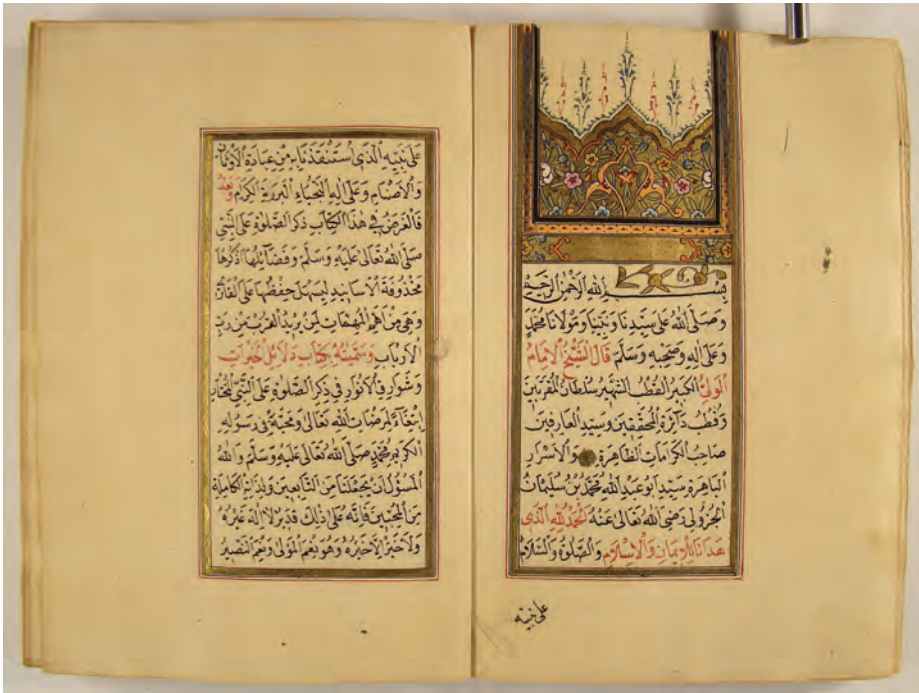 بسم الله الرحمن الرحيم
وَصَلَّى اللهُ عَلَى سَيِّدِنَا وَنَبِيِّنَا وَمَوْلَانَا مُحَمَّدٍ
وَعَلَى اٰلِهِ وَصَحْبِهِ وَسَلَّمَ قَالَ الشَّيْخُ الْاِمَامُ
الْوَلِيُّ الْكَبِيرُ الْقُطْبُ الشَّهِيرُ سُلْطَانُ الْمُقَرَّبِينَ
وَقُطْبُ دَآئِرَةِ الْمُحَقِّقِينَ وَسَيِّدُ الْعَارِفِينَ
صَاحِبُ الْكَرَامَاتِ الظَّاهِرَةِ وَالْاَسْرَارِ
الْبَاهِرَةِ سَيِّدِ اَبُو عَبْدِ اللهِ مُحَمَّدُ بْنُ سُلَيْمَانَ
الْجَزُولِي رَضِيَ اللهُ تَعَالٰى عَنْهُ اَلْحَمْدُ لِلّٰهِ الَّذِى
هَدَانَا لِلْاِيمَانِ وَالْاِسْلَامِ وَالصَّلٰوةُ وَالسَّلَامُ
على نبيه
عَلٰى نَبِيِّهِ الَّذِى اسْتَنْقَذَنَا بِهِ مِنْ عِبَادَةِ الْاَوْثَانِ
وَالْاَصْنَامِ وَعَلٰى اٰلِهِ النُّجَبَاءِ الْبَرَرَةِ الْكِرَامِ وَبَعْدُ
فَالْغَرَضُ فِى هٰذَا الْكِتَابِ ذِكْرُ الصَّلٰوةِ عَلَى النَّبِيِّ
صَلَّى اللهُ تَعَالٰى عَلَيْهِ وَسَلَّمَ وَفَضَآئِلُهَا اَذْكُرُهَا
مَحْذُوفَةَ الْاَسَانِيدِ لِيَسْهُلَ حِفْظُهَا عَلَى الْقَارِئِ
وَهِيَ مِنْ اَهَمِّ الْمُهِمَّاتِ لِمَنْ يُرِيدُ الْقُرْبَ مِنْ رَبِّ
الْاَرْبَابِ وَسَمَّيْتُهُ بِكِتَابِ دَلَائِلِ الْخَيْرَاتِ
وَشَوَارِقِ الْاَنْوَارِ فِى ذِكْرِ الصَّلٰوةِ عَلَى النَّبِيِّ الْمُخْتَارِ
اِبْتِغَآءً لِمَرْضَاتِ اللهِ تَعَالٰى وَمَحَبَّةً فِى رَسُولِهِ
الْكَرِيمِ مُحَمَّدٍ صَلَّى اللهُ تَعَالٰى عَلَيْهِ وَسَلَّمَ وَاللهُ
الْمَسْؤُلُ اَنْ يَجْعَلَنَا مِنَ التَّابِعِينَ وَلِذَاتِهِ الْكَامِلَةِ
مِنَ الْمُحِبِّينَ فَاِنَّهُ عَلٰى ذٰلِكَ قَدِيرٌ لَا اِلٰهَ غَيْرُهُ
وَلَا خَيْرَ اِلَّا خَيْرُهُ وَهُوَ نِعْمَ الْمَوْلٰى وَنِعْمَ النَّصِيرُ